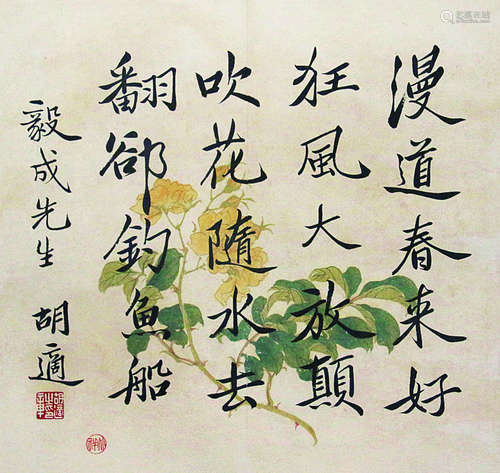 漫道春来好
狂風大放顛
吹花隨水去
翻郤釣魚船
毅成先生
胡適